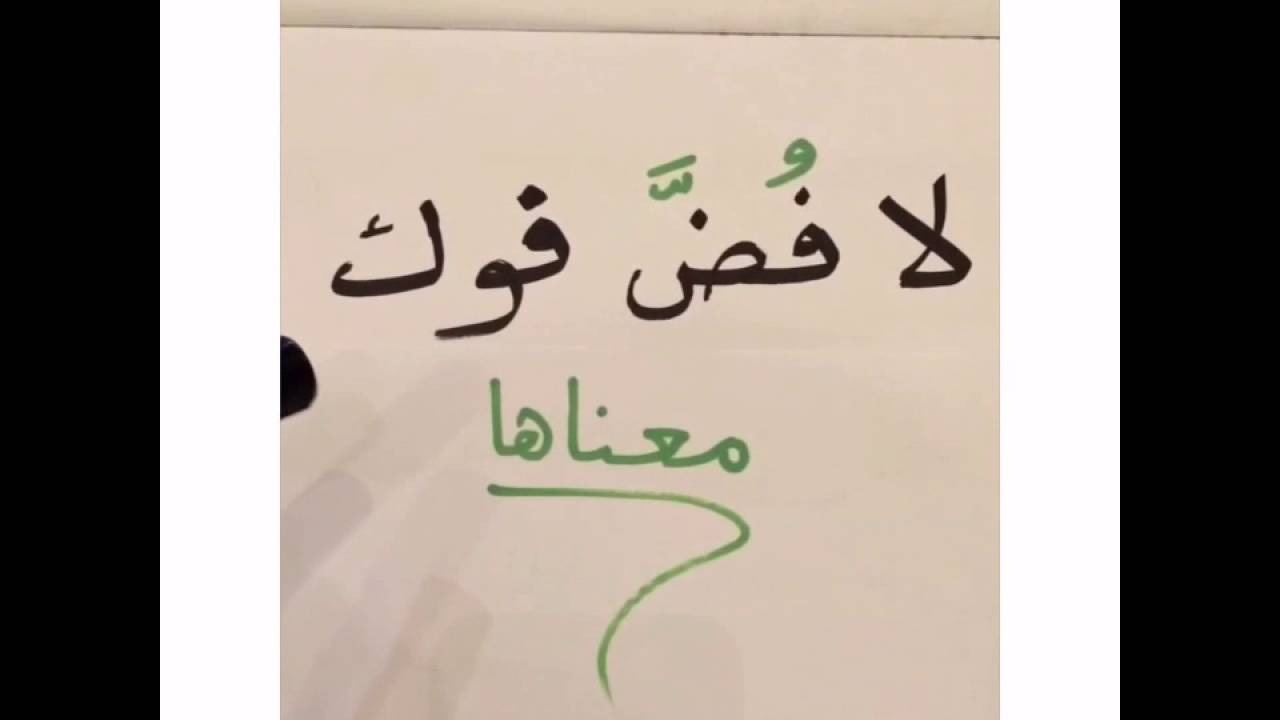 لا فُضَّ فوك
معناها